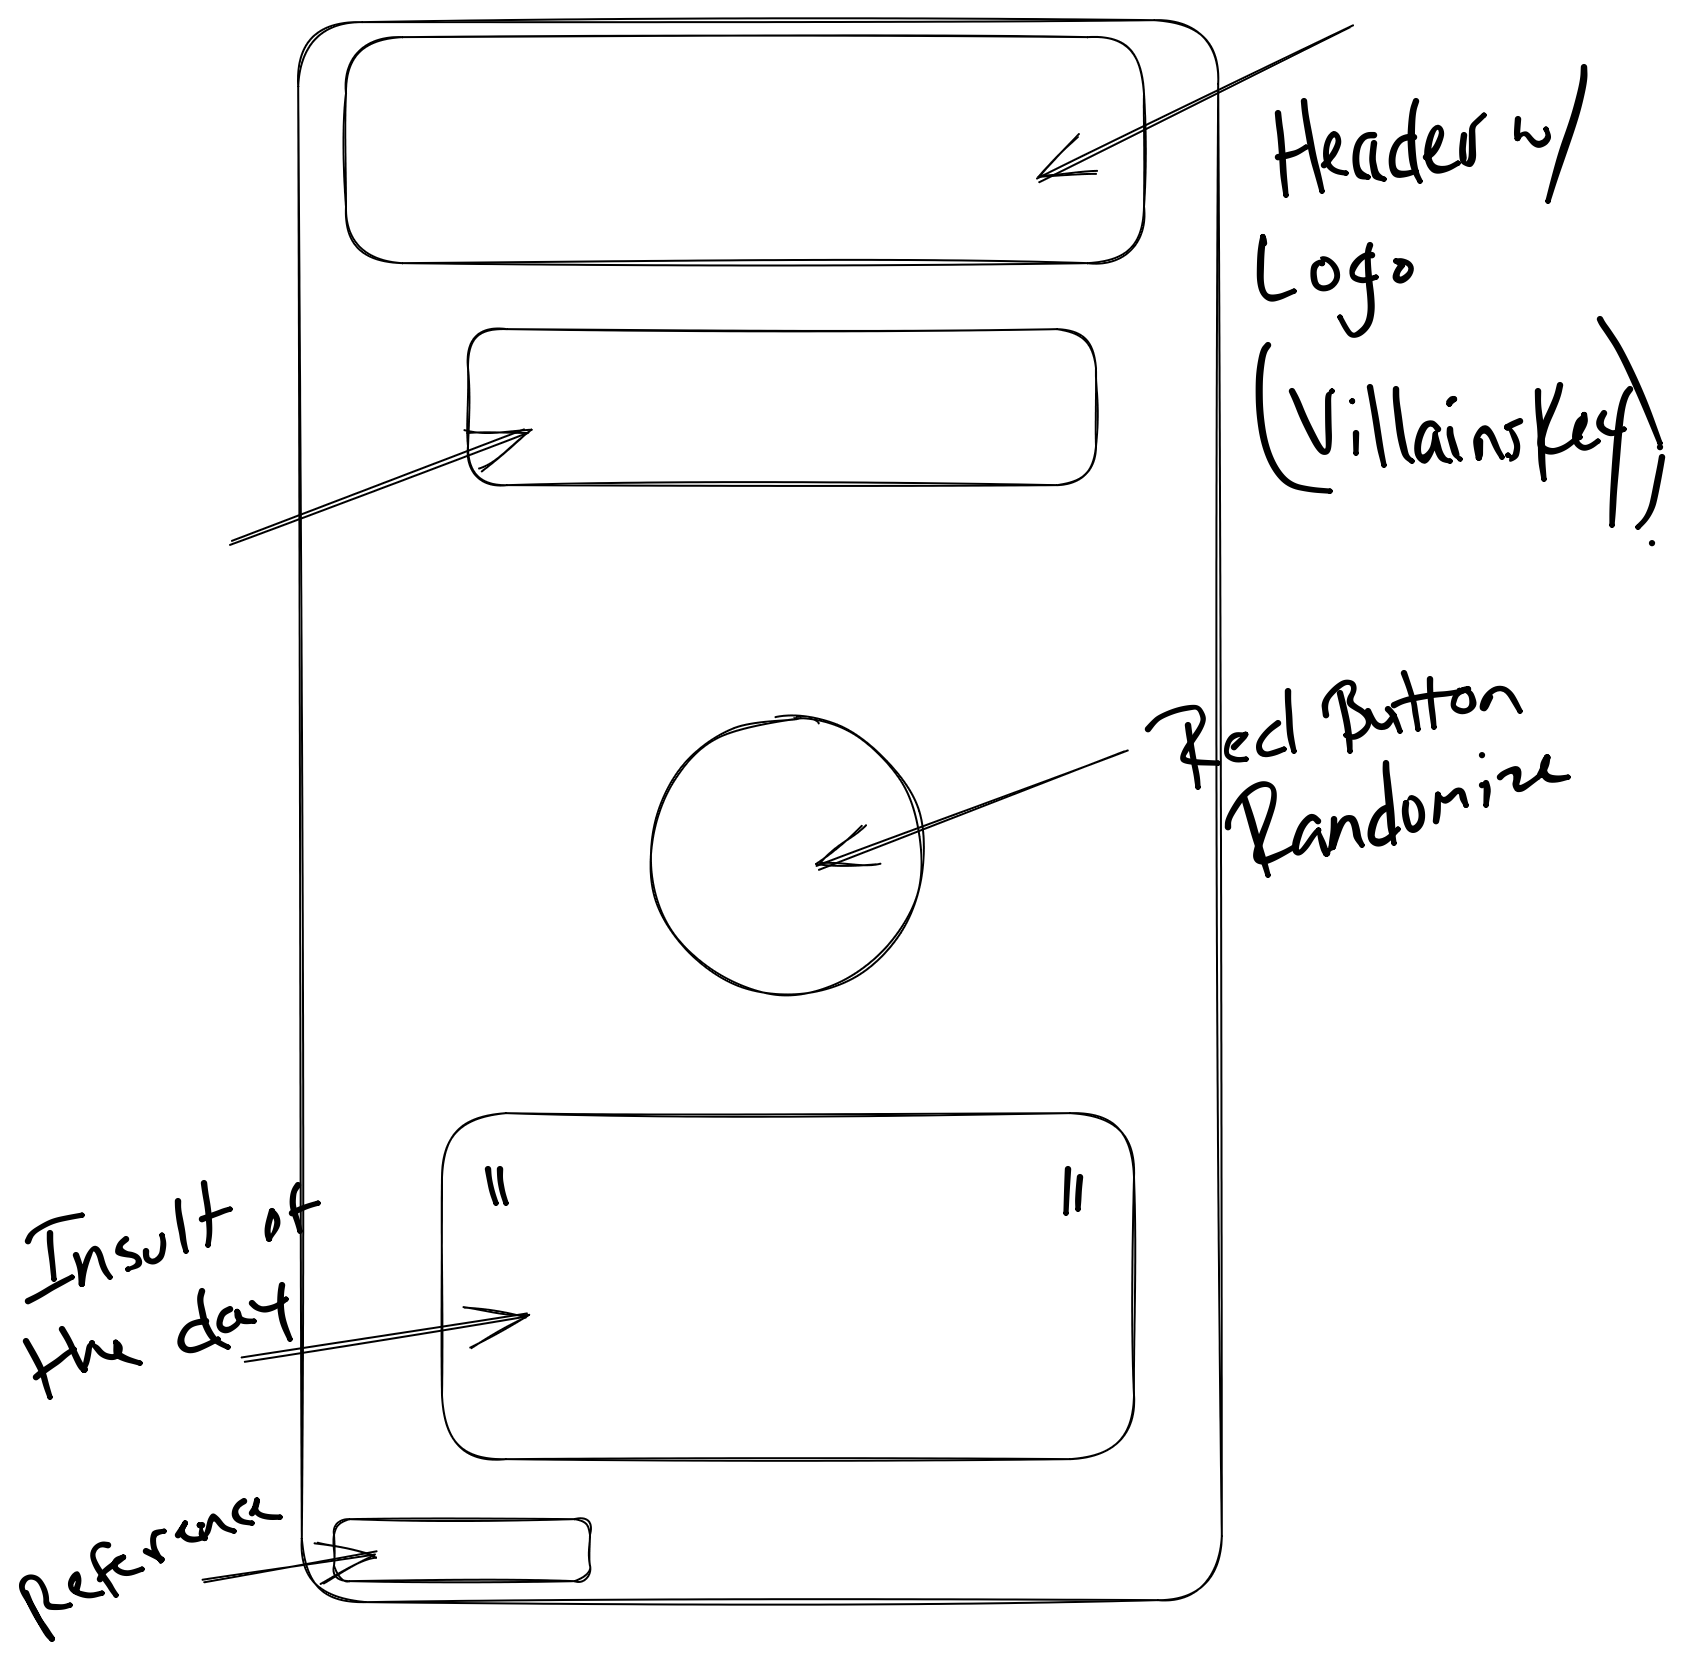 Header w/
Logo
(VillainsKey)!
Red Button
Randomize
" "
Insult of
the day
Reference